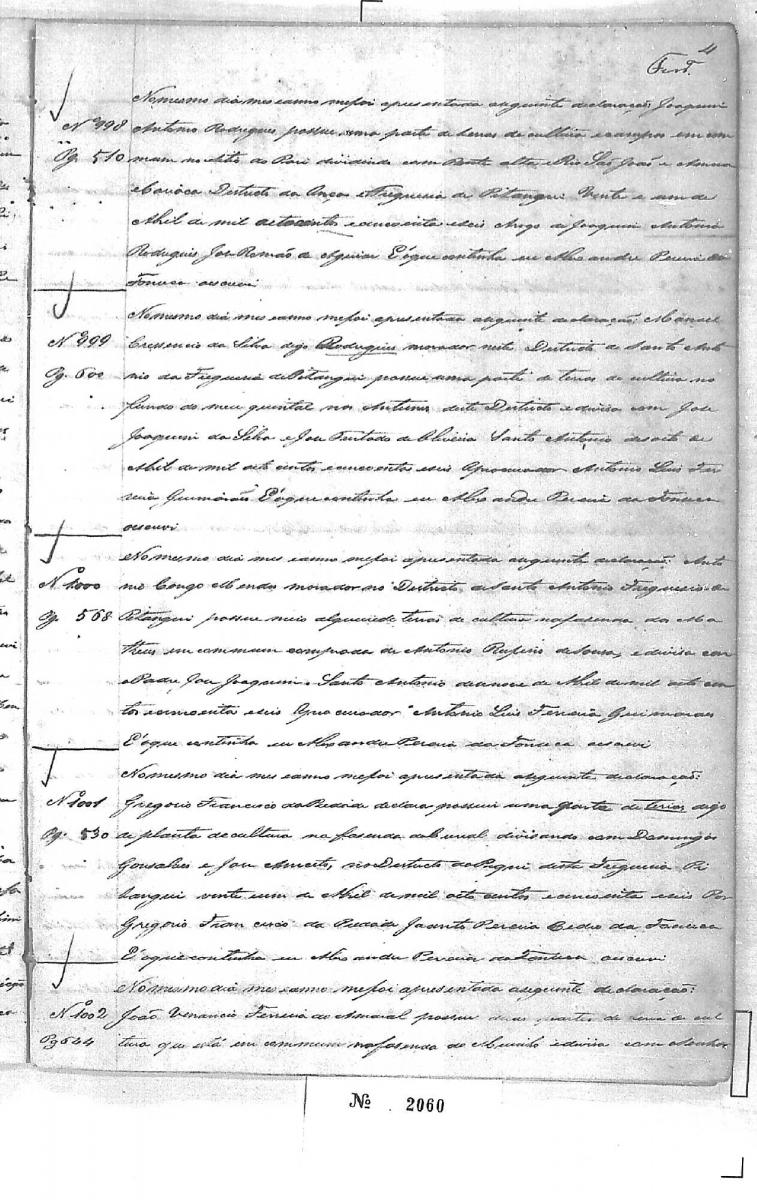 4
No mesmo dia mes e anno me foi apresentada a seguinte declaração Joaquim
Nº 998 Antonio Rodrigues possue uma parte de terras de cultura e campos em com
Pg. 510 mum no sitio do Pari dividindo com Ponte alta, e Rio São João e
Districto da Onça e Freguesia de Pitangui Vinte e um de
Abril de mil oitocentos e cincoenta e seis Arogo de Joaquim Antonio
Rodrigues José Romão de Aguiar E o que continha eu Alexandre Pereira da
Fonseca o escrevi
No mesmo dia mes e anno me foi apresentada a seguinte declaração; Manoel
Nº 999 Cressencio da Silva digo Rodrigues morador neste Districto de Santo Anto
Pg. 600 nio da Freguesia de Pitangui possue uma parte de terras de cultura no
fundo do meu quintal nos Antunes deste Districto e divisa com José
Joaquim da Silva e José Furtado de Oliveira Santo Antonio desoito de
Abril de mil oito centos e cincoenta e seis Aprocurador Antonio Luis Fer
reira Guimarães E o que continha eu Alexandre Pereira da Fonseca
o escrevi
No mesmo dia mes e anno me foi apresentada a seguinte declaração: Anto
Nº 1000 nio Congo morador no Districto de Santo Antonio Freguesia de
Pg. 568 Pitangui possue meio alqueire de terras de cultura na fasenda do Ma
theus em commum comprada de Antonio Rufino de Sousa, e divisa com
o Padre José Joaquim. Santo Antonio desanove de Abril de mil oito cen
tos e cincoenta e seis Aprocurador Antonio Luis Ferreira Guimarães
E o que continha eu Alexandre Pereira da Fonseca o escrevi
No mesmo dia mes e anno me foi apresentada a seguinte declaração:
Nº 1001 Gregorio Francisco da Piedade declara possuir uma parte de terras digo
Pg. 530 de planta de cultura na fasenda do Curral divisando com Domingos
Gonsalves e José Aniceto, no Districto do Pequi desta Freguesia Pi
tangui vinte e um de Abril de mil oito centos e cincoenta e seis Por
Gregorio Francisco da Piedade Jacinto Pereira Cedro da Fonseca
E o que continha eu Alexandre Pereira da Fonseca o escrevi
No mesmo dia mes e anno me foi apresentada a seguinte declaração:
Nº 1002 João Venancio Ferreira do Amaral possue duas partes de terra de cul
Pg 544 tura que está em commum na fasenda do e divisa com
Nº 2060